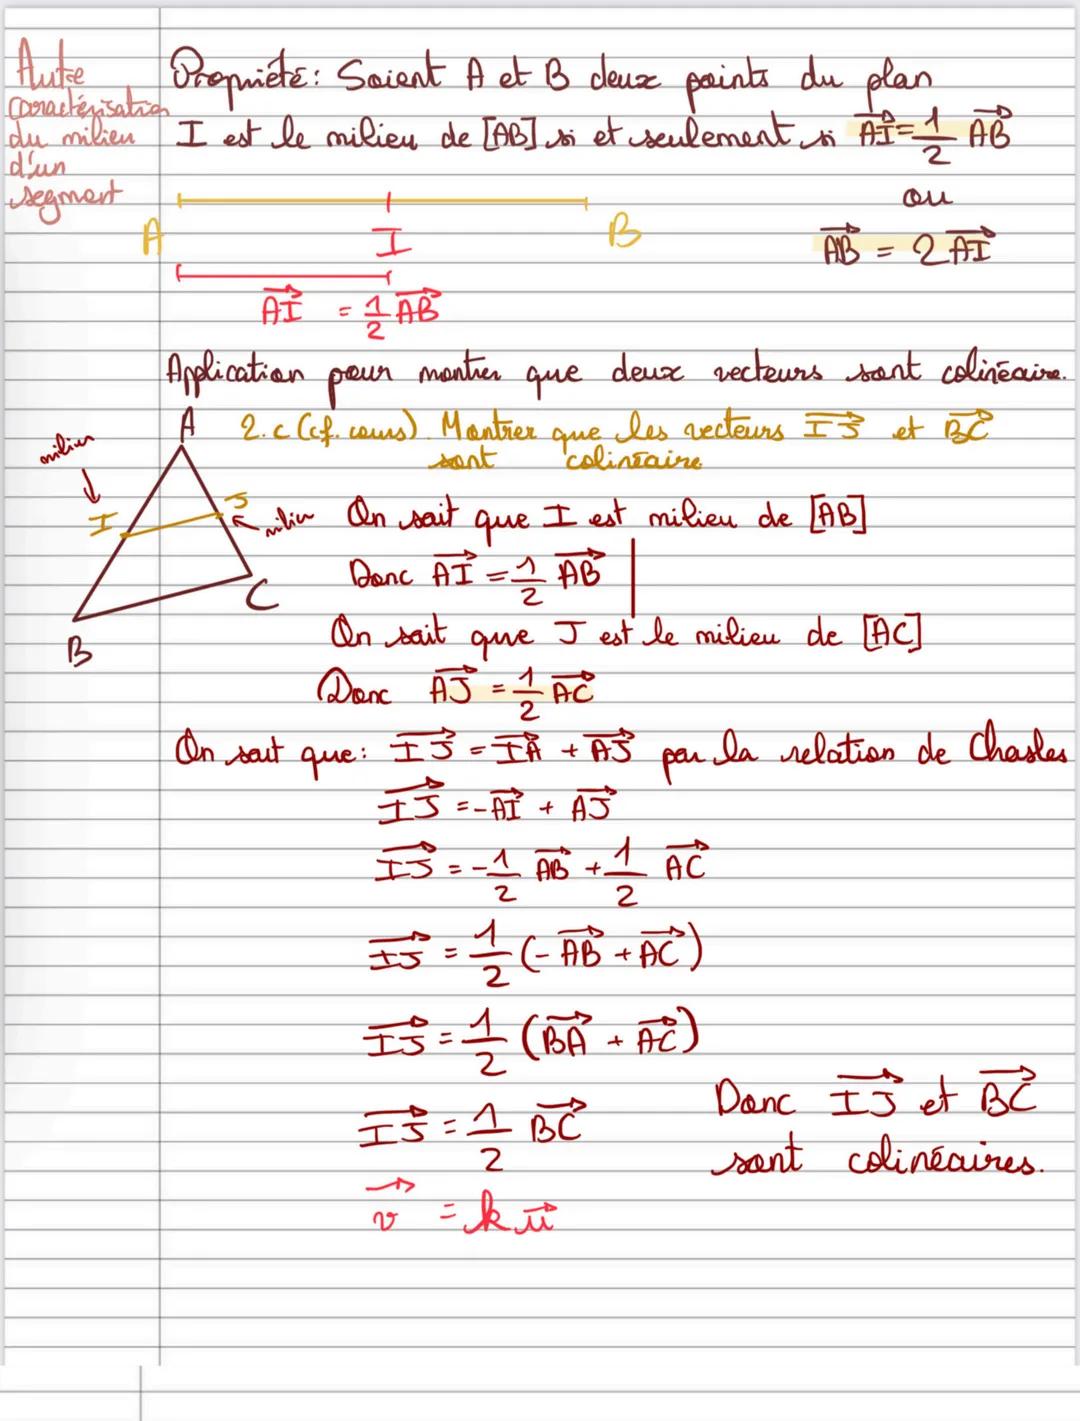 Autre
caractérisation
du milieu
d'un
segment
Propriété: Soient A et B deux points du plan
I est le milieu de [AB] si et seulement si AI⃗ = 1/2 AB⃗
ou
AB⃗ = 2 AI⃗
A I B
AI⃗ = 1/2 AB⃗
Application pour montrer que deux vecteurs sont colinéaire.
2.c (cf. cours). Montrer que les vecteurs IJ⃗ et BC⃗
sont colinéaire
A
milieu
I
J
milieu
C
B
On sait que I est milieu de [AB]
Donc AI⃗ = 1/2 AB⃗
On sait que J est le milieu de [AC]
Donc AJ⃗ = 1/2 AC⃗
On sait que: IJ⃗ = IA⃗ + AJ⃗ par la relation de Chasles
IJ⃗ = -AI⃗ + AJ⃗
IJ⃗ = -1/2 AB⃗ + 1/2 AC⃗
IJ⃗ = 1/2 (-AB⃗ + AC⃗)
IJ⃗ = 1/2 (BA⃗ + AC⃗)
IJ⃗ = 1/2 BC⃗
v⃗ = k u⃗
Donc IJ⃗ et BC⃗
sont colinéaires.